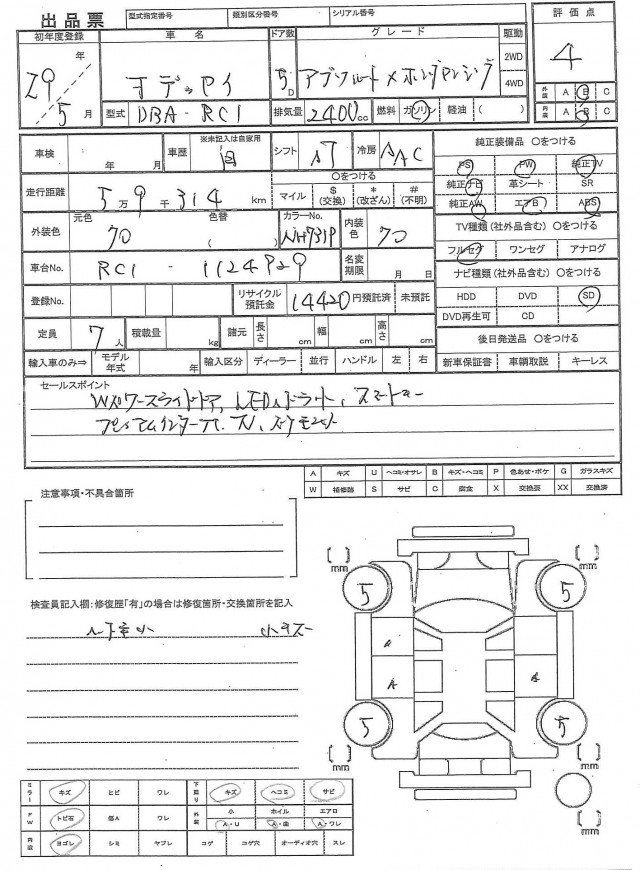 出品票 型式指定番号 類別区分番号 シリアル番号
評価点
初年度登録 車名 ドア数 グレード 駆動
29年 オデッセイ 5D アブソルート 2WD 4WD 4
5月 型式 DBA-RC1 排気量 2400cc 燃料 ガソリン 軽油 ( )
外装 A B C
内装 A B C
車検 年 月 車歴 ※未記入は自家用 自 シフト AT 冷房 AAC
純正装備品 〇をつける
PS PW 純正TV
純正ナビ 革シート SR
純正AW エアB ABS
走行距離 5万9千314km 〇をつける マイル $(交換) *(改ざん) #(不明)
外装色 元色 70 色替 ( ) カラーNo. NH731P 内装色 70
TV種類(社外品含む)〇をつける
フルセグ ワンセグ アナログ
車台No. RC1 - 1124929 名変期限 月 日
ナビ種類(社外品含む)〇をつける
HDD DVD SD
DVD再生可 CD
登録No. リサイクル預託金 14420円預託済 未預託
定員 7人 積載量 kg 諸元 長さ cm 幅 cm 高さ cm
後日発送品 〇をつける
新車保証書 車輌取説 キーレス
輸入車のみ⇒ モデル年式 年 輸入区分 ディーラー 並行 ハンドル 左 右
セールスポイント
Wパワースライドドア、LEDヘッドライト、スマートキー
A キズ U ヘコミ・オサレ B キズ・ヘコミ P 色あせ・ボケ G ガラスキズ
W 補修跡 S サビ C 腐食 X 交換要 XX 交換済
注意事項・不具合箇所
検査員記入欄:修復歴「有」の場合は修復箇所・交換箇所を記入
小キズ
[ ]mm [ ]mm
5 5
A
A
5 5
[ ]mm [ ]mm
[ ]mm
ミラー キズ ヒビ ワレ 下廻り キズ ヘコミ サビ
FW トビ石 傷A ワレ 外装 小 A・U ホイル A・曲 エアロ A・ワレ
内装 ヨゴレ シミ ヤブレ コゲ コゲ穴 オーディオ穴 スレ